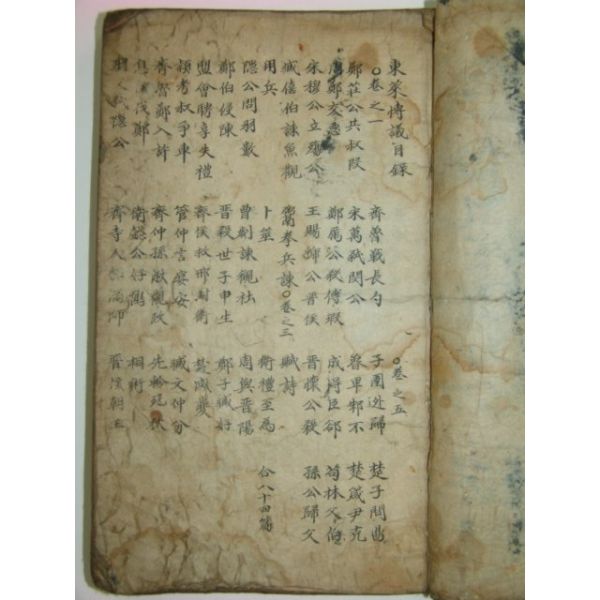 東萊博議目錄
○卷之一
鄭莊公共叔段
周鄭交惡
宋穆公立殤公
臧僖伯諫魚觀
用兵
隱公問羽數
鄭伯侵陳
盟會聘享失禮
潁考叔爭車
齊魯鄭入許
息侯伐鄭
羽父弑隱公
齊魯戰長勺
宋萬弑閔公
鄭厲公殺傅瑕
王賜虢公晉侯
鬻拳兵諫○卷之三
卜筮
曹劌諫觀社
晉殺世子申生
齊侯救邢封衛
管仲言宴安
齊仲孫湫觀政
衛懿公好鶴
齊寺人貂漏師
○卷之五
子圉逃歸
魯卑邾不
成得臣郤
晉懷公殺
賦詩
衛禮至為
周與晉陽
鄭子臧好
楚滅夔
臧文仲分
先軫死狄
相術
晉侯朝王
楚子問鼎
楚箴尹克
荀林父伯
孫公歸父
合八十四篇